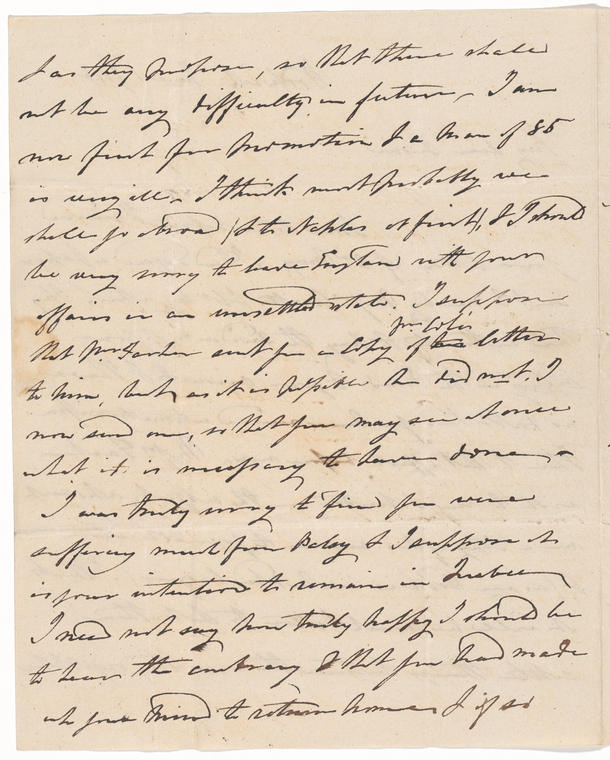 & as they propose, so that there shall
not be any difficulty in future – I am
now first for Promotion & a Man of 85
is very ill – I think most probably we
shall go abroad (& to Naples at first), & I should
be very sorry to leave England with your
affairs in an unsettled state. I suppose
that Mr. sent you a Copy of
Mr Cole's
letter
to him, but, as it is possible he did not, I
now send one, so that you may see at once
what it is necessary to have done –
I was truly sorry to find you were
suffering much from Palsy & I suppose it
is your intention to remain in Quebec
I need not say how truly happy I should be
to hear the contrary & that you had made
up your Mind to return home & if so